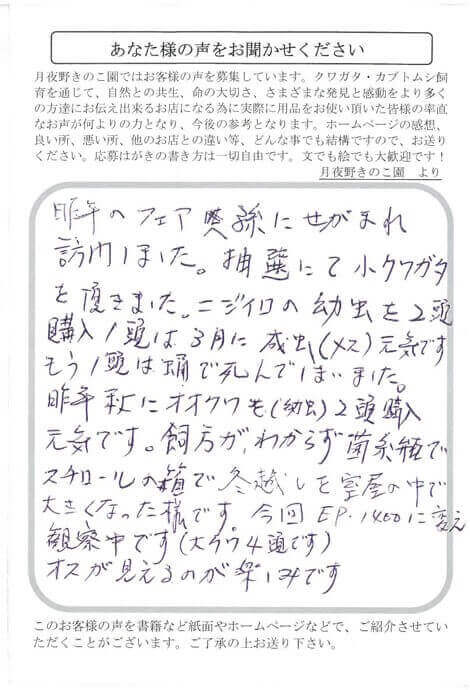 あなた様の声をお聞かせください
月夜野きのこ園ではお客様の声を募集しています。クワガタ・カブトムシ飼
育を通じて、自然との共生、命の大切さ、さまざまな発見と感動をより多く
の方達にお伝え出来るお店になる為に実際に用品をお使い頂いた皆様の率直
なお声が何よりの力となり、今後の参考となります。ホームページの感想、
良い所、悪い所、他のお店との違い等、どんな事でも結構ですので、お送り
ください。応募はがきの書き方は一切自由です。文でも絵でも大歓迎です！
月夜野きのこ園　より
昨年のフェア 孫にせがまれ
訪問しました。抽選にて小クワガタ
を頂きました。ニジイロの幼虫を2頭
購入1頭は3月に成虫(メス)元気です
もう1頭は蛹で死んでしまいました。
昨年秋にオオクワも(幼虫)2頭購入
元気です。飼方が、わからず菌糸瓶で
スチロールの箱で冬越しを室屋の中で
大きくなった様です。今回EP-1400に変え
観察中です(大クワ4頭です)
オスが見えるのが楽しみです
このお客様の声を書籍など紙面やホームページなどで、ご紹介させてい
ただくことがございます。ご了承の上お送り下さい。